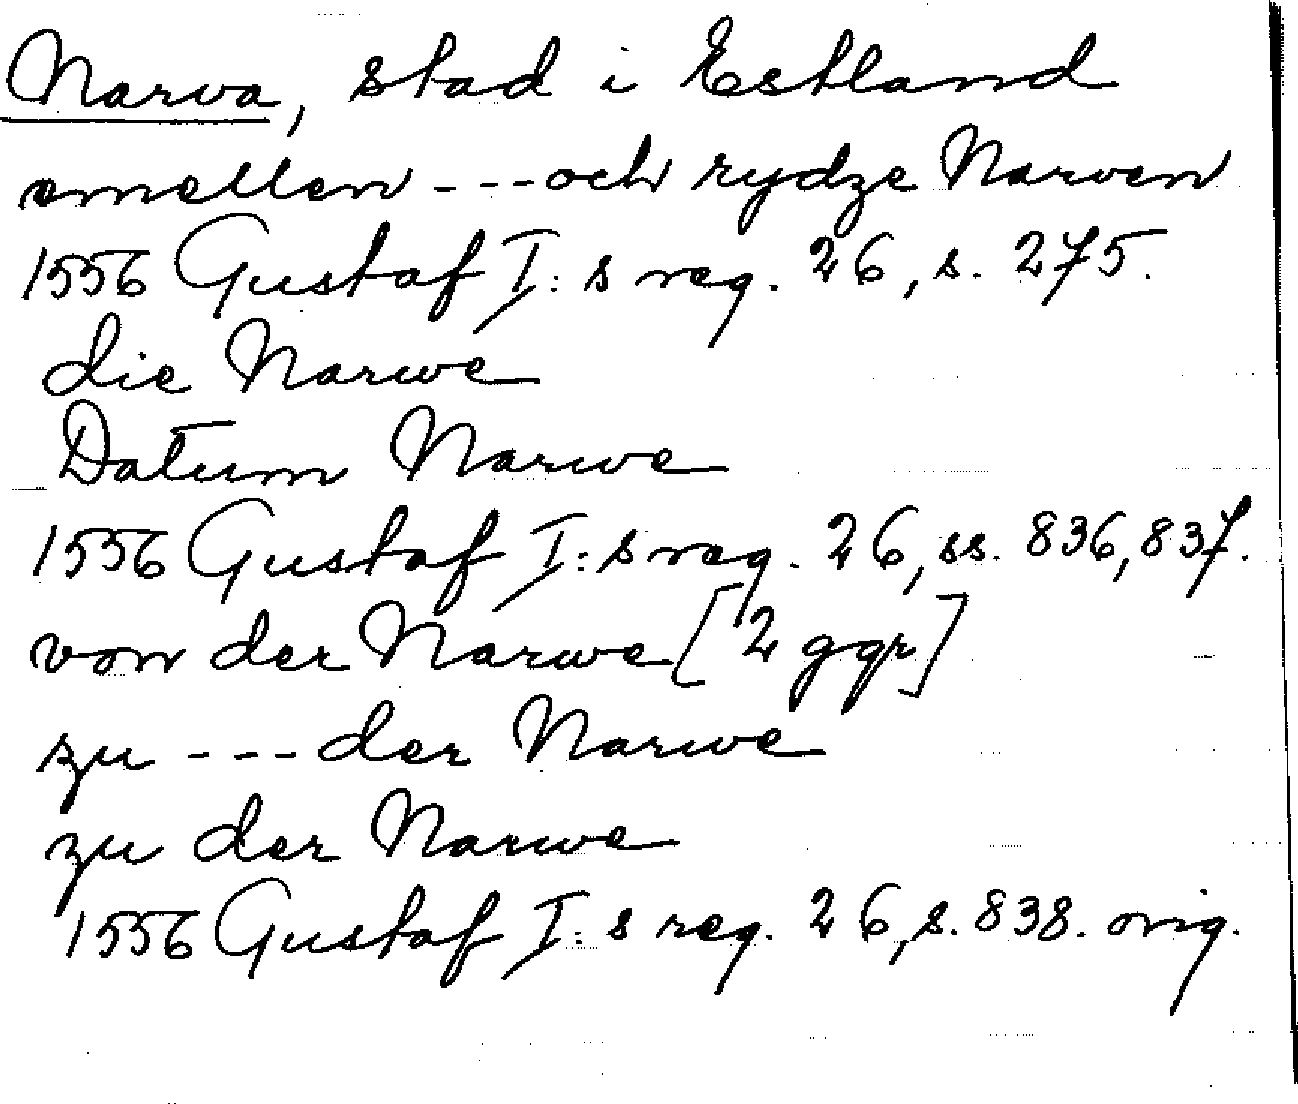 Narva, stad i Estland
emellen --- och rydze Narven
1556 Gustaf I:s reg. 26, s. 275.
die Narwe
Datum Narwe
1556 Gustaf I:s reg. 26, ss. 836, 837.
von der Narwe [2 ggr]
zu --- der Narwe
zu der Narwe
1556 Gustaf I:s reg. 26, s. 838. orig.